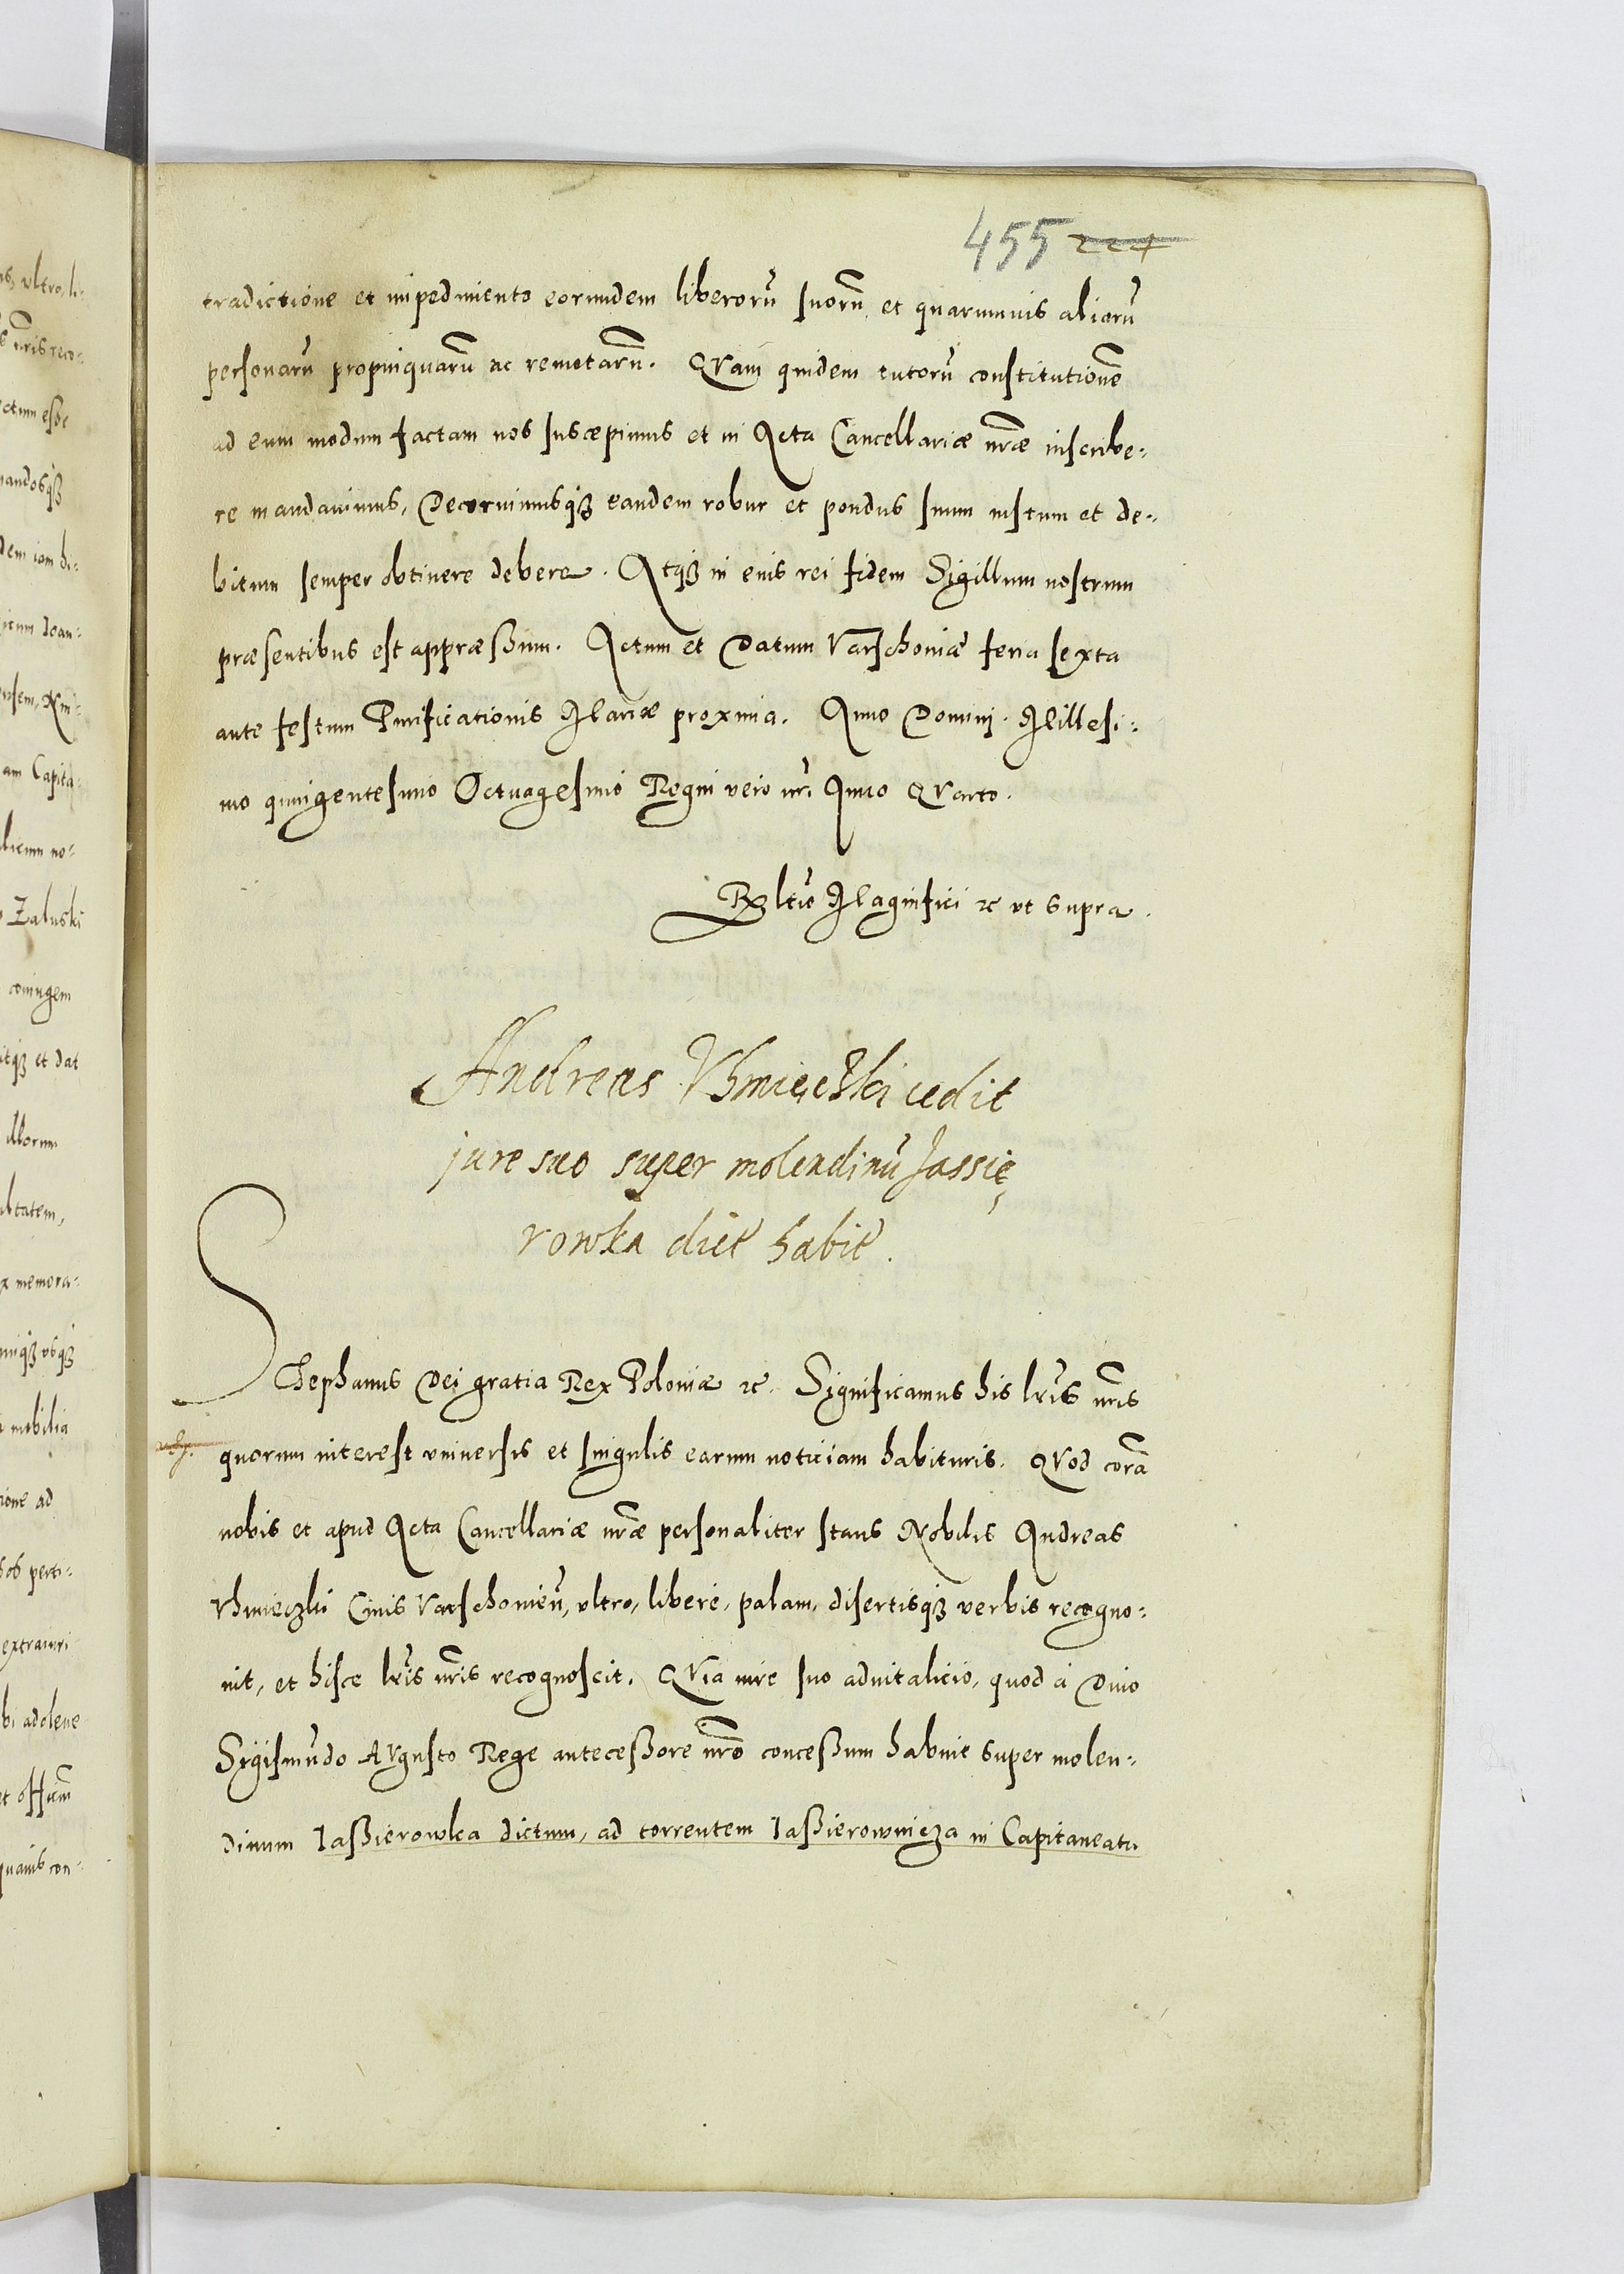 455 224
tradictione et impedimento eorundem liberorū suorū et quarumuis aliorū
personarū propinquarū ac remotarū. QVam quidem tutorū constitutionē
ad eum modum factam nos suscæpimus et in Acta Cancellariæ nr̄æ inscribe:
re mandauimus, Decreuimusqꝫ eandem robur et pondus suum iustum et de:
bitum semper obtinere debere. Atqꝫ in eius rei fidem Sigillum nostrum
præsentibus est appræßum. Actum et Datum Varschouiæ feria sexta
ante festum Purificationis Mariæ proxima. Anno Dominj Millesi:
mo quingentesimo Octuagesimo Regni vero nr̄i Anno QVarto.
Rltio Magnifici ꝛc vt supra.
Andreas Vhmięczki cedit
jure suo super molendinū Jassię
rowka dict habit.
Stephanus Dei gratia Rex Poloniæ ꝛc. Significamus his lr̄is nr̄is
quorum interest vniuersis et singulis earum noticiam habituris. QVod corā
nobis et apud Acta Cancellariæ nr̄æ personaliter stans Nobilis Andreas
Vhmieczki Ciuis Varschouień, vltro, libere, palam, disertisqꝫ verbis recogno:
uit, et hisce lr̄is nr̄is recognoscit. QVia iure suo aduitalicio, quod à Diuo
Sigismūdo AVgusto Rege anteceßore nr̄o conceßum habuit super molen:
dinum Iaßierowka dictum, ad torrentem Iaßierownicza in Capitaneatu